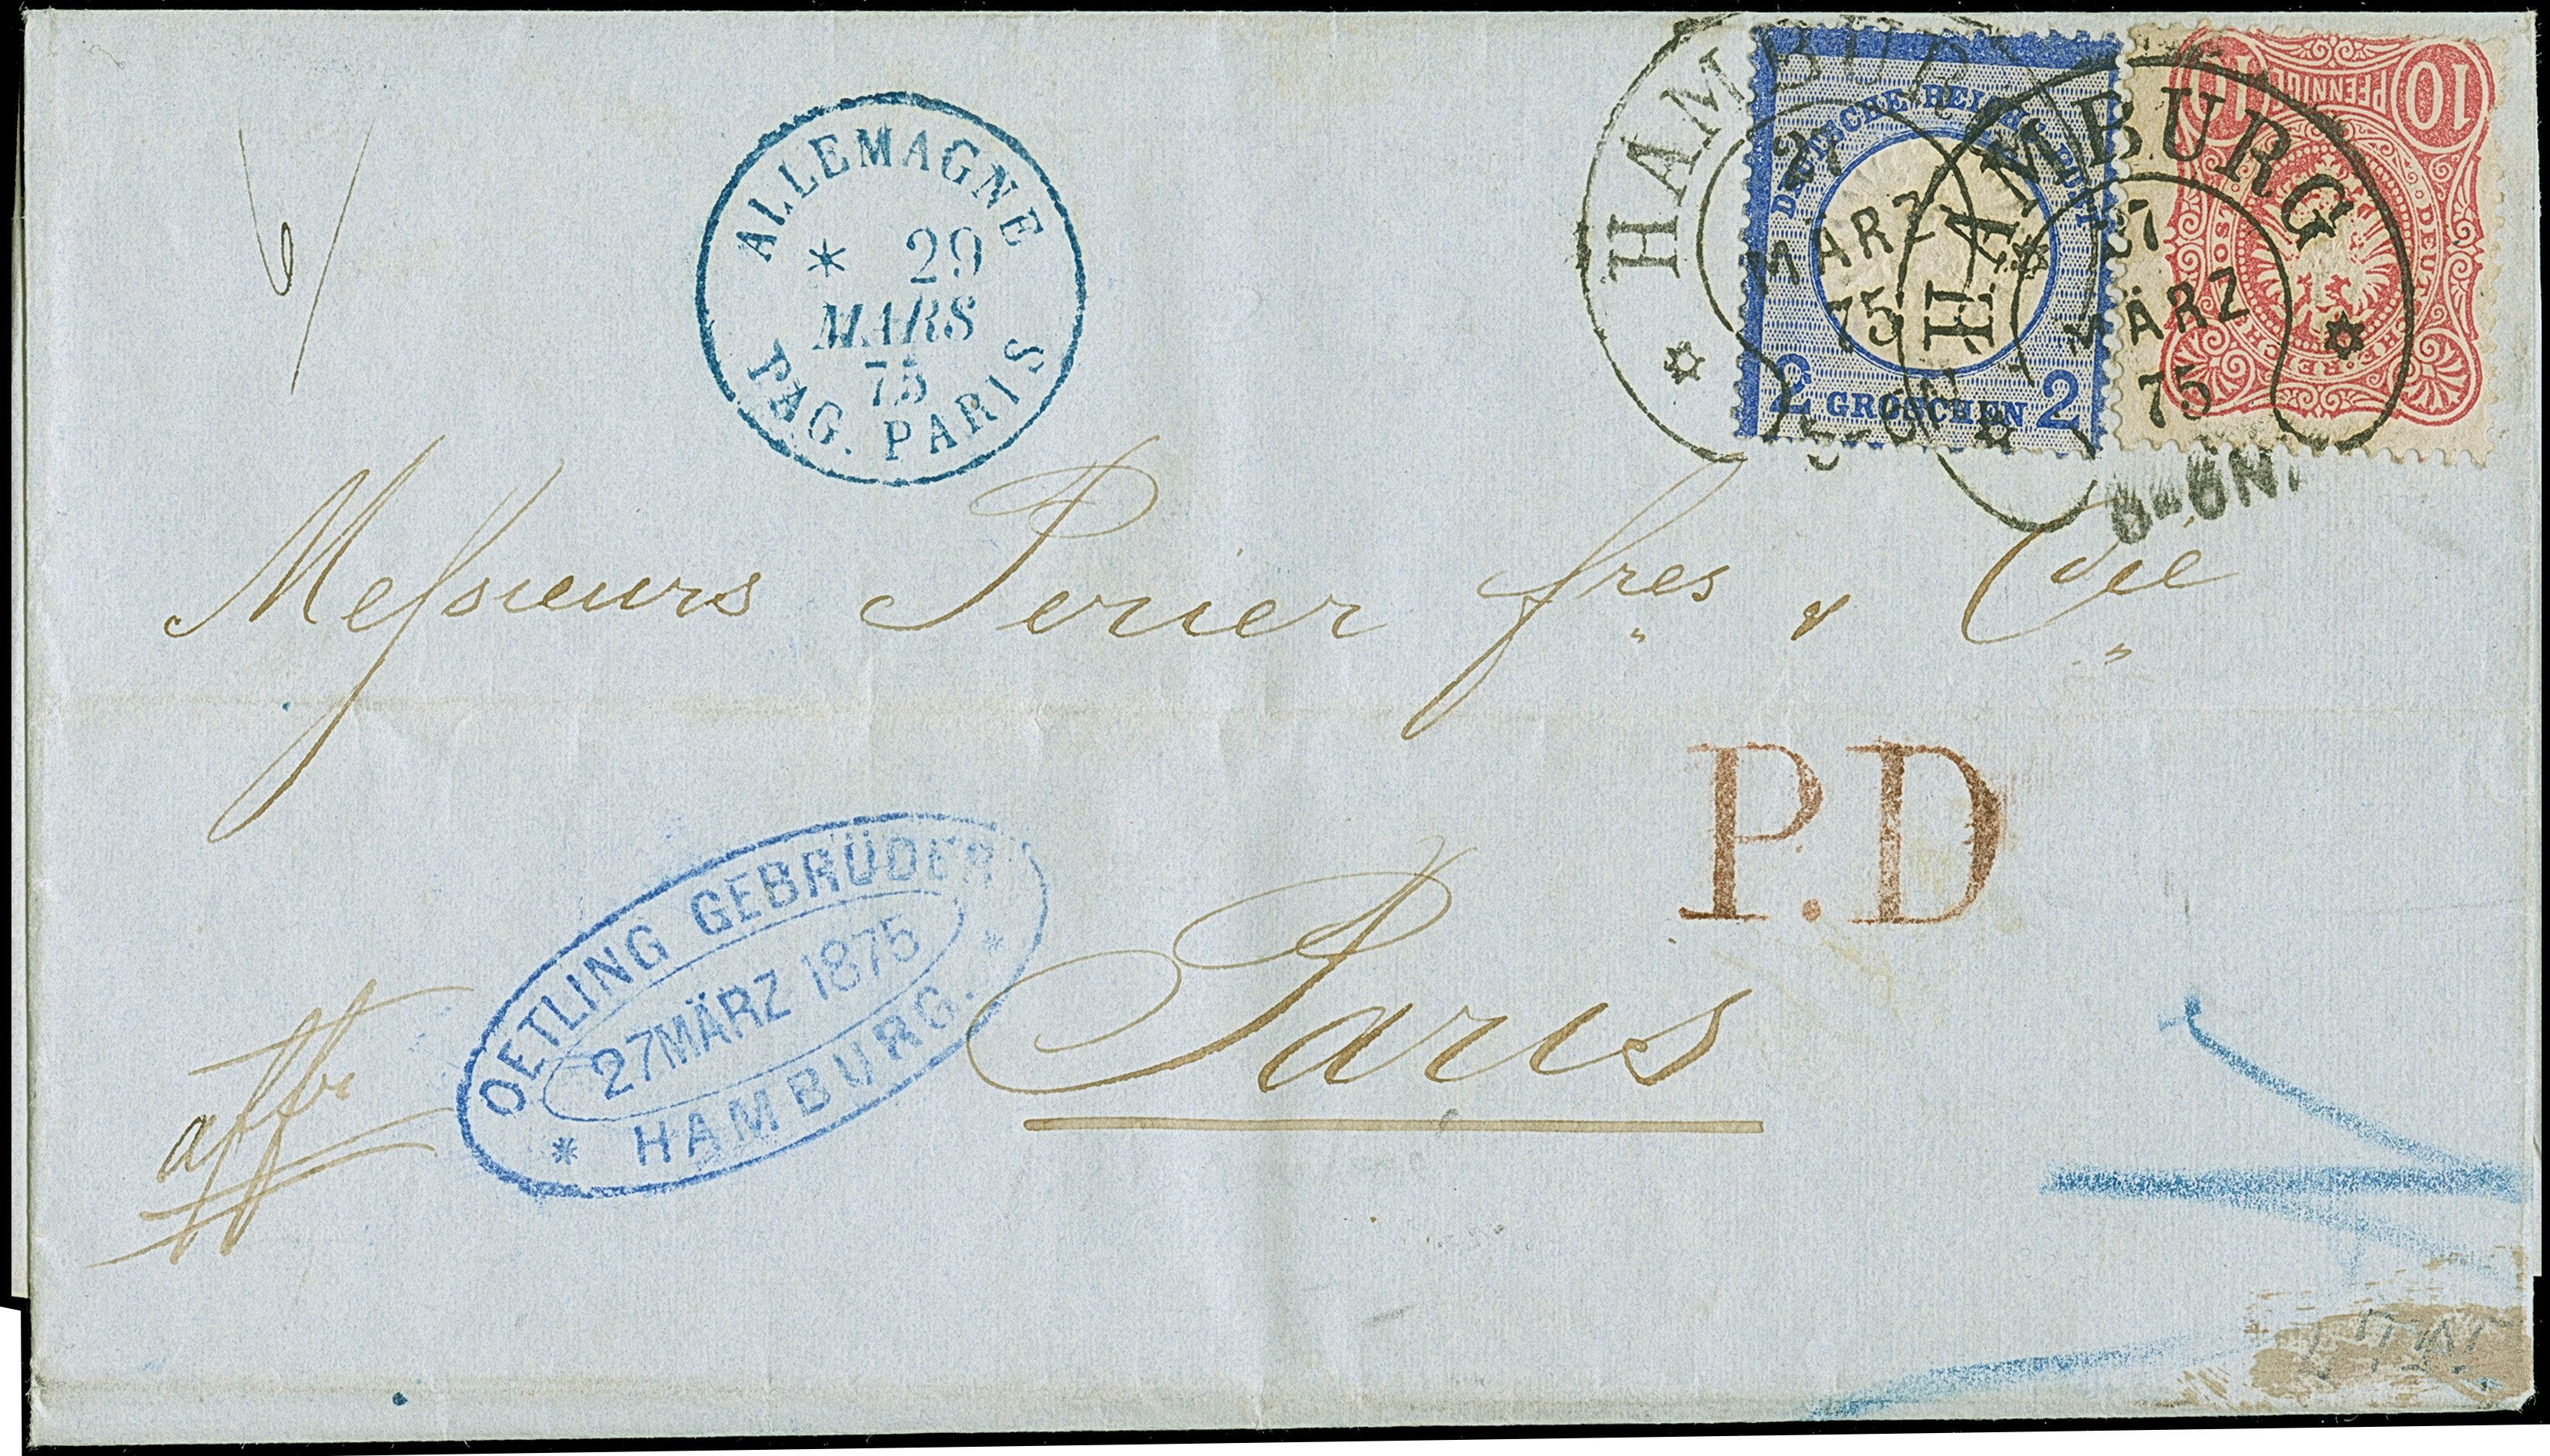 HAMBURG
27
MÄRZ
75
DEUTSCHE REICHS-POST
2 GROSCHEN 2
HAMBURG
27
MÄRZ
75
10 PFENNIGE 10
DEUTSCHE REICHS-POST
ALLEMAGNE
* 29
MARS
75
PAG. PARIS
Messieurs Perier fres & Cie
P.D
Paris
OETLING GEBRÜDER
27 MÄRZ 1875
* HAMBURG. *
affr